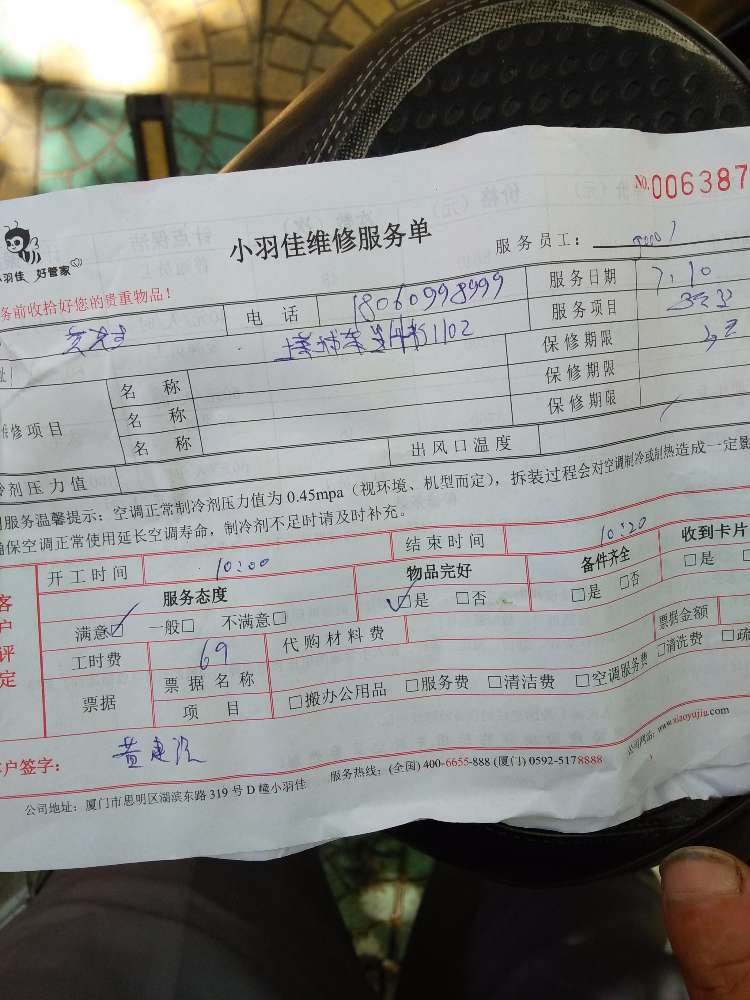 NO.006387
小羽佳 好管家
小羽佳维修服务单
服务员工：
务前收拾好您的贵重物品！
电 话 18060998999 服务日期 7.10
1102 服务项目 空
保修期限
维修项目 名 称 保修期限
名 称 保修期限
名 称
冷剂压力值 出风口温度
服务温馨提示：空调正常制冷剂压力值为 0.45mpa（视环境、机型而定），拆装过程会对空调制冷或制热造成一定影
确保空调正常使用延长空调寿命，制冷剂不足时请及时补充。
客户评定
开工时间 10:00 结束时间 10:20
服务态度 物品完好 备件齐全 收到卡片
满意☑ 一般□ 不满意□ ☑是 □否 □是 □否 □是
工时费 69 代购材料费 票据金额
票据 票据名称 □搬办公用品 □服务费 □清洁费 □空调服务费 □清洗费 □疏
项 目
户签字： 黄建
公司地址：厦门市思明区湖滨东路 319 号 D 幢小羽佳 服务热线：(全国) 400-6655-888 (厦门) 0592-5178888 公司网站：www.xiaoyujia.com